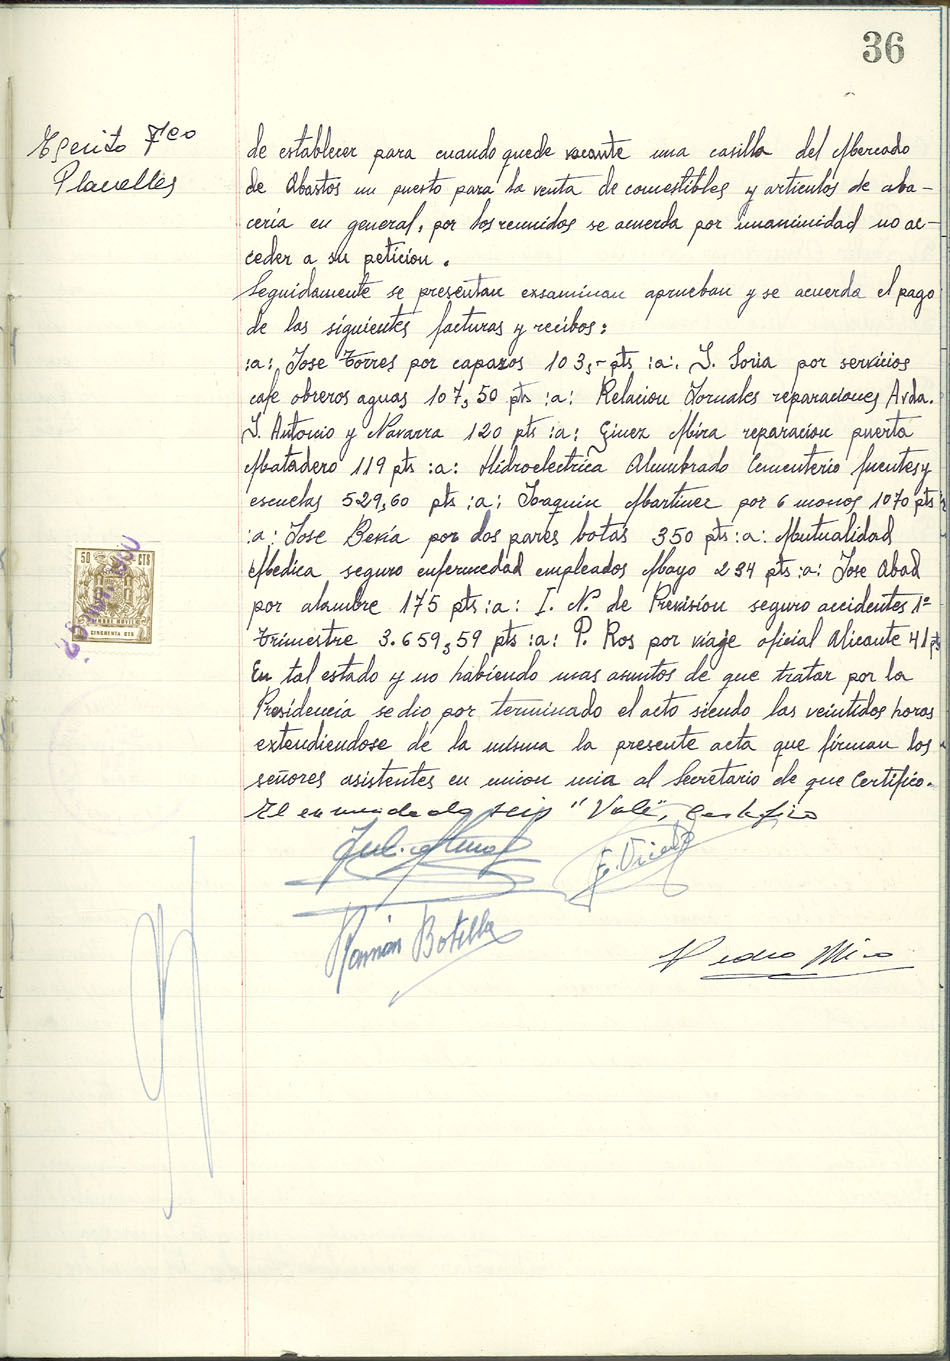 36
Escrito Fco
Planelles
de establecer para cuando quede vacante una casilla del Mercado
de Abastos un puesto para la venta de comestibles y articulos de aba-
ceria en general, por los reunidos se acuerda por unanimidad no ac-
ceder a su peticion.
Seguidamente se presentan exsaminan aprueban y se acuerda el pago
de las siguientes facturas y recibos:
:a: Jose Torres por capazos 103,- pts :a: J. Soria por servicios
cafe obreros aguas 107,50 pts :a: Relacion Jornales reparaciones Avda.
J. Antonio y Navarra 120 pts :a: Ginez Mira reparacion puerta
Matadero 119 pts :a: Hidroelectrica Alumbrado Cementerio fuentes y
escuelas 529,60 pts :a: Joaquin Martinez por 6 monos 1070 pts
:a: Jose Beviá por dos pares botas 350 pts :a: Mutualidad
Medica seguro enfermedad empleados Mayo 234 pts :a: Jose Abad
por alambre 175 pts :a: I. N. de Prevision seguro accidentes 1º
trimestre 3.659,59 pts :a: P. Ros por viaje oficial Alicante 41 pts
En tal estado y no habiendo mas asuntos de que tratar por la
Presidencia se dio por terminado el acto siendo las veintidos horas
extendiendose de la misma la presente acta que firman los
señores asistentes en union mia al Secretario de que Certifico.
El enmendado seis "Vale", Certifico
50 CTS
TIMBRE MOVIL
CINCUENTA CTS
Ramón Botella
Pedro Miró